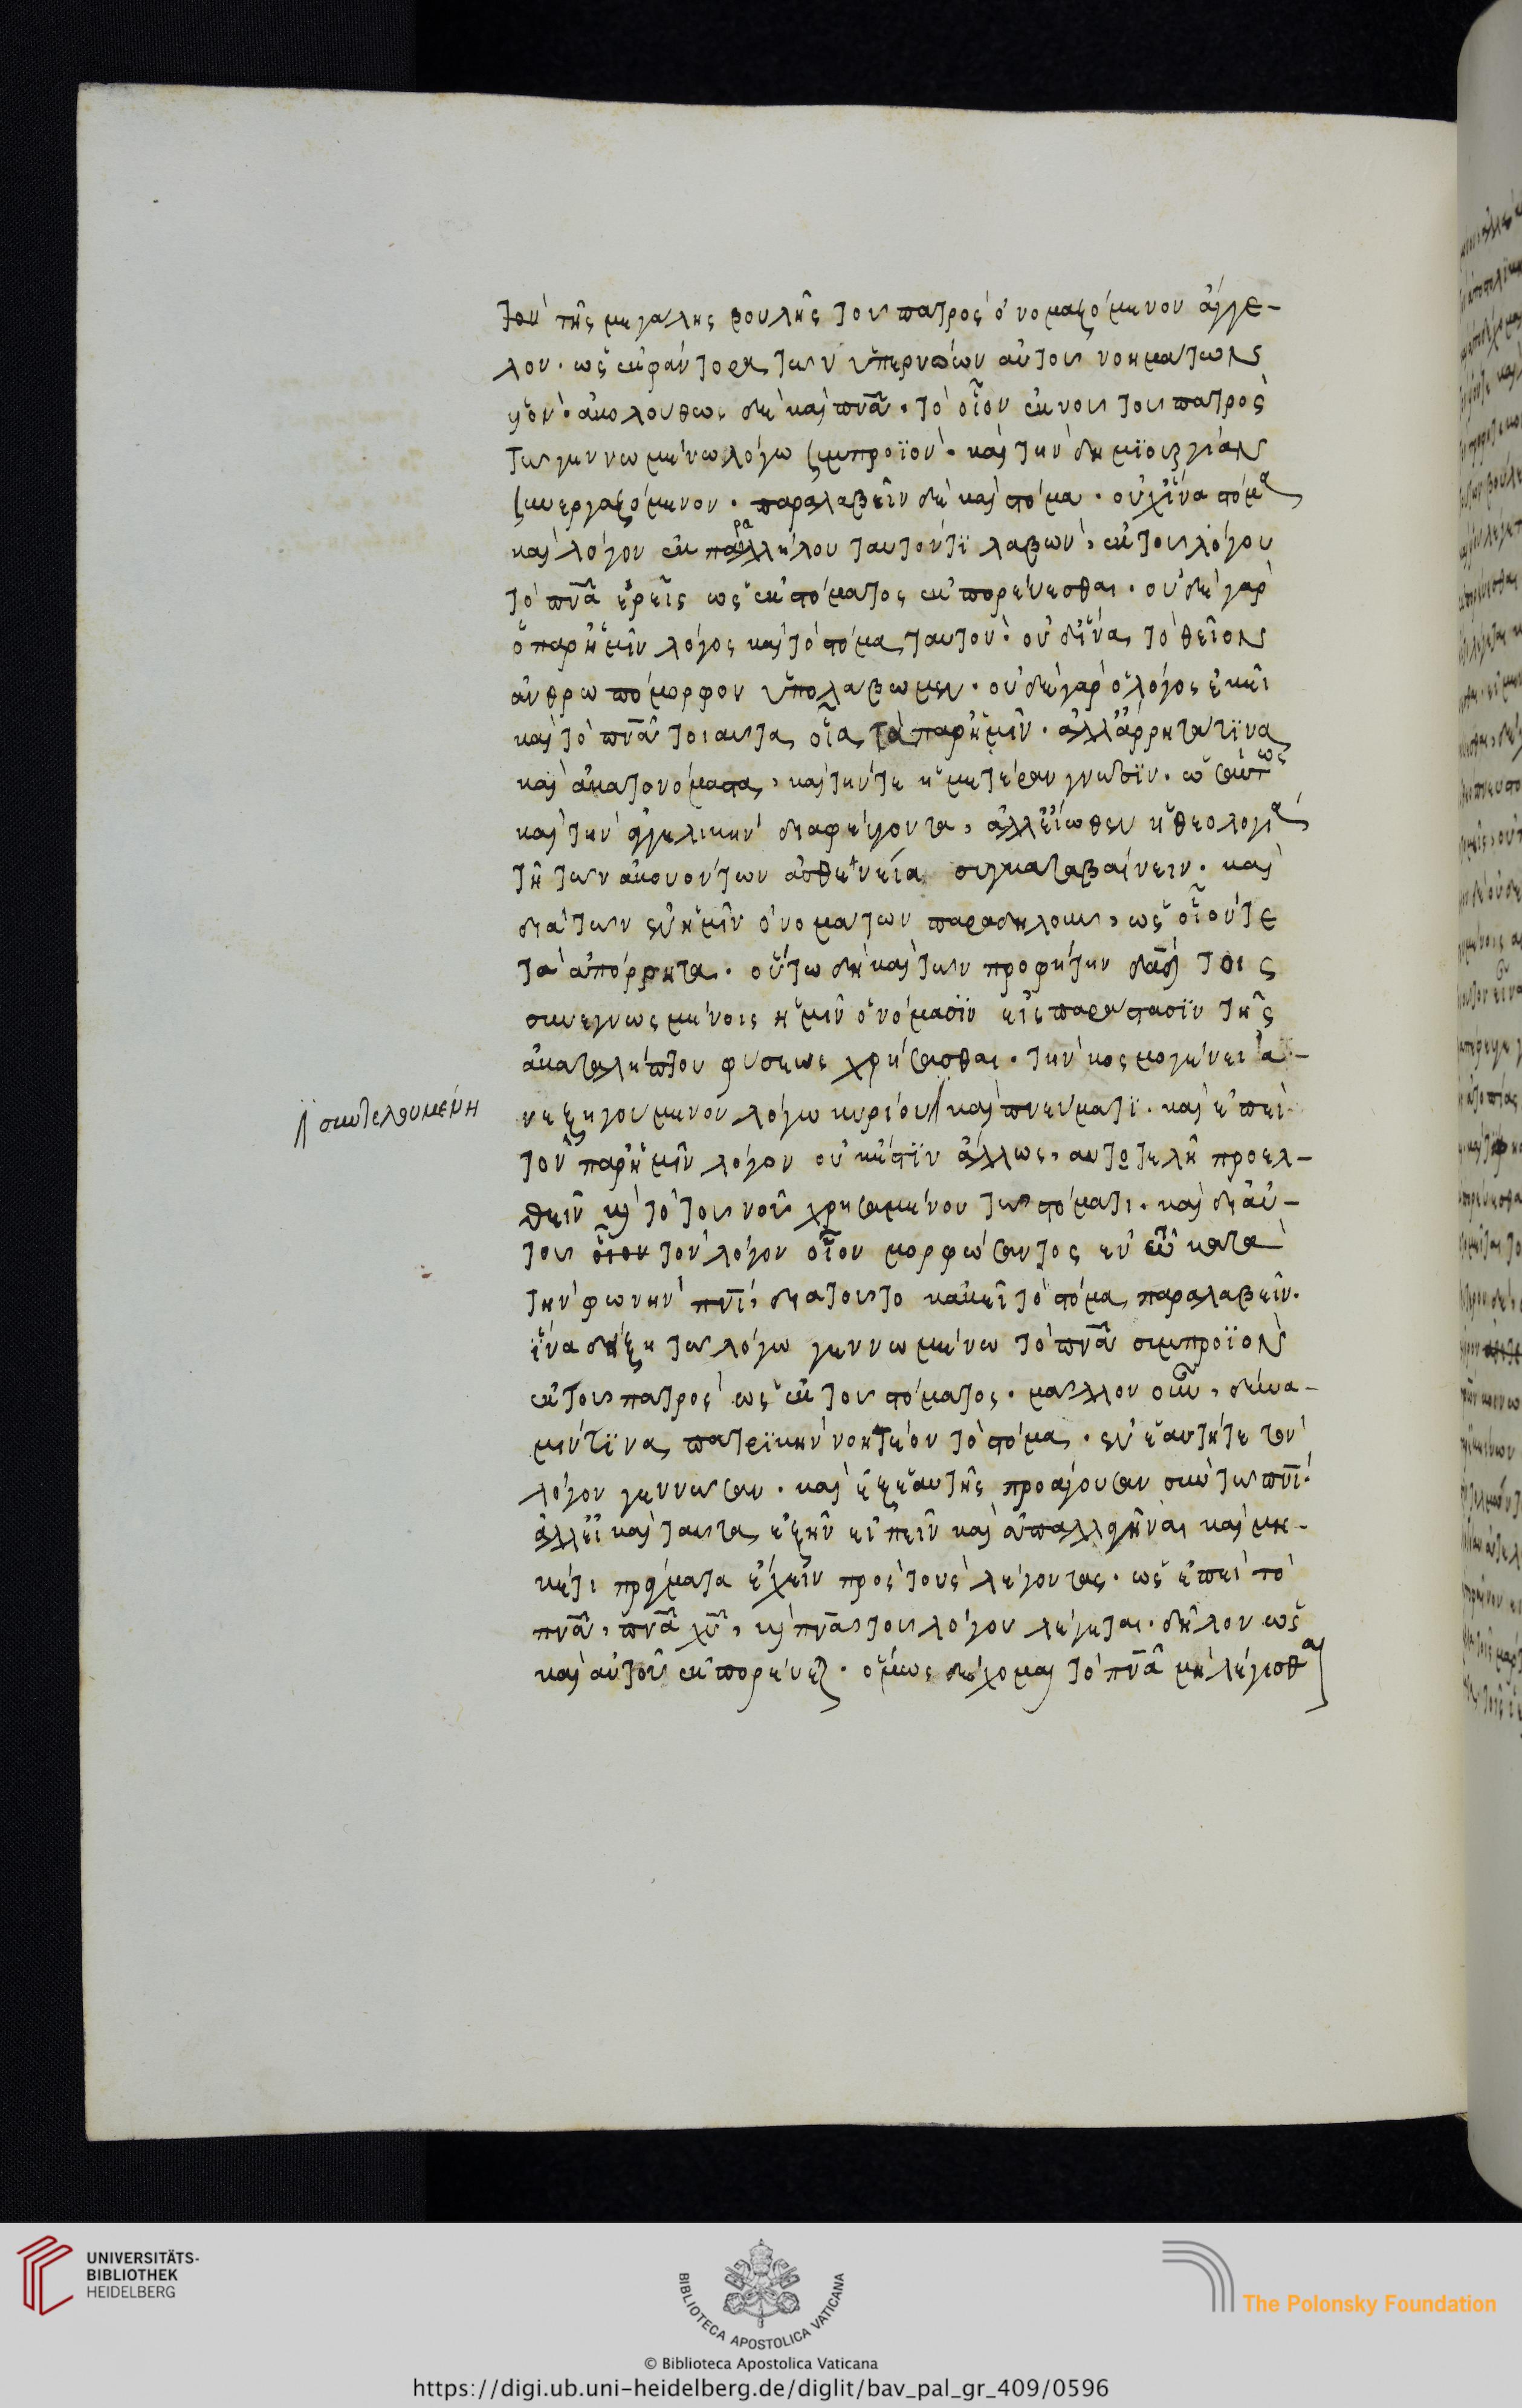 τὸν τῆς μεγάλης βουλῆς τοῦ πατρὸς ὀνομαζόμενον ἄγγε-
λον. ὡς ἐκφάντορα τῶν αὐτοῦ νοημάτων
υἱόν. ἀκολούθως δὲ καὶ πνᾶ. τὸ οἷον ἐκ νοῦ τοῦ πατρὸς
τῶ γεννωμένω λόγω συμπροϊόν. καὶ τὴν δημιουργίαν
συνεργαζόμενον. παραλαβεῖν δὲ καὶ στόμα. οὐχ ἵνα στόμα
καὶ λόγον ἐκ παραλλήλου ταυτόν τι λαβὼν, ἐκ τοῦ λόγου
τὸ πνᾶ ἐρεῖς ὡς ἐκ στόματος ἐκπορεύεσθαι. οὐδὲ γὰρ
ὁ παρ' ἡμῖν λόγος καὶ τὸ στόμα ταυτόν. οὐδ' ἵνα τὸ θεῖον
ἀνθρωπόμορφον ὑπολάβωμεν. οὐδὲ γὰρ ὁ λόγος ἐκεῖ
καὶ τὸ πνᾶ τοιαῦτα, οἷα τὰ παρ' ἡμῖν. ἀλλ' ἄρρητα τινα
καὶ ἀκατονόμαστα, καὶ τήν τε ἡμετέραν γνῶσιν. ὡσαύτως
καὶ τὴν ἀγγελικὴν διαφεύγοντα, ἀλλ' εἴωθεν ἡ θεολογία
τῆ τῶν ἀκουόντων ἀσθενεία συγκαταβαίνειν. καὶ
διὰ τῶν ἐν ἡμῖν ὀνομάτων παραδηλοῦν, ὡς οἷόν τε
τὰ ἀπόρρητα. οὕτω δὴ καὶ τὸν προφήτην δᾱδ τοῖς
συνεγνωσμένοις ἡμῖν ὀνόμασιν εἰς παράστασιν τῆς
ἀκαταλήπτου φύσεως χρήσασθαι. τὴν κοσμογένεια-
ν ἐξηγούμενον λόγω κυρίου καὶ πνεύματι. καὶ ἐπεὶ
συντελουμένη
τὸν παρ' ἡμῖν λόγον οὐκ ἔστιν ἄλλως, αὐτοτελῆ προελ-
θεῖν μὴ τὸ τοῦ νοῦ χρησαμένου τῶ στόματι. καὶ δι' αὐ-
τοῦ τὸν λόγον οἷον μορφώσαντος ἐν τῶ κατὰ
τὴν φωνὴν πνῑ, διὰ τοῦτο κἀκεῖ τὸ στόμα παραλαβεῖν.
ἵνα δείξη τῶ λόγω γεννωμένω τὸ πνᾶ συμπροϊὸν
ἐκ τοῦ πατρὸς ὡς ἐκ τοῦ στόματος. μᾶλλον οὖν, δύνα-
μίν τινα πατρικὴν νοητέον τὸ στόμα. ἐν ἑαυτῆ τε τὸν
λόγον γεννῶσαν. καὶ ἐξ ἑαυτῆς προάγουσαν σὺν τῶ πνῑ.
ἀλλ' εἰ καὶ ταῦτα ἐξῆν εἰπεῖν καὶ ἀπαλλαγῆναι καὶ μη-
κέτι πράγματα ἔχειν πρὸς τοὺς λέγοντας. ὡς ἐπεὶ τὸ
πνᾶ, πνᾶ χῡ, καὶ πνᾶ τοῦ λόγου λέγεται. δῆλον ὡς
καὶ αὐτοῦ ἐκπορεύεται. ὅμως δέχομαι τὸ πνᾶ μὴ λέγεσθαι
UNIVERSITÄTS-
BIBLIOTHEK
HEIDELBERG
BIBLIOTECA APOSTOLICA VATICANA
The Polonsky Foundation
© Biblioteca Apostolica Vaticana
https://digi.ub.uni-heidelberg.de/diglit/bav_pal_gr_409/0596